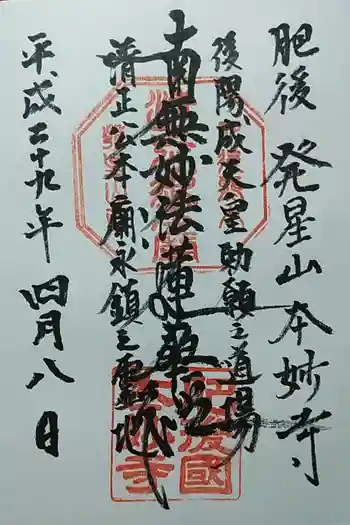 肥後 発星山本妙寺
後陽成天皇勅願之道場
南無妙法蓮華経
清正公本廟永鎮之霊地
平成二十九年 四月八日
肥後國